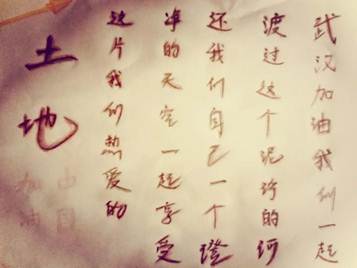 武汉加油我们一起
渡过这个泥泞的河
还我们自己一个澄
净的天空一起享受
这片我们热爱的
土地
中国
加油